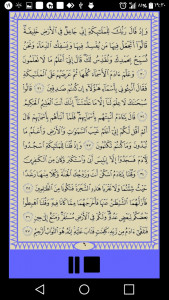 وَإِذْ قَالَ رَبُّكَ لِلْمَلَٰٓئِكَةِ إِنِّى جَاعِلٌ فِى ٱلْأَرْضِ خَلِيفَةً
قَالُوٓا۟ أَتَجْعَلُ فِيهَا مَن يُفْسِدُ فِيهَا وَيَسْفِكُ ٱلدِّمَآءَ وَنَحْنُ
نُسَبِّحُ بِحَمْدِكَ وَنُقَدِّسُ لَكَ قَالَ إِنِّىٓ أَعْلَمُ مَا لَا تَعْلَمُونَ
٣٠ وَعَلَّمَ ءَادَمَ ٱلْأَسْمَآءَ كُلَّهَا ثُمَّ عَرَضَهُمْ عَلَى ٱلْمَلَٰٓئِكَةِ
فَقَالَ أَنۢبِـُٔونِى بِأَسْمَآءِ هَٰٓؤُلَآءِ إِن كُنتُمْ صَٰدِقِينَ ٣١ قَالُوا۟
سُبْحَٰنَكَ لَا عِلْمَ لَنَآ إِلَّا مَا عَلَّمْتَنَآ إِنَّكَ أَنتَ ٱلْعَلِيمُ ٱلْحَكِيمُ
٣٢ قَالَ يَٰٓـَٔادَمُ أَنۢبِئْهُم بِأَسْمَآئِهِمْ فَلَمَّآ أَنۢبَأَهُم بِأَسْمَآئِهِمْ قَالَ
أَلَمْ أَقُل لَّكُمْ إِنِّىٓ أَعْلَمُ غَيْبَ ٱلسَّمَٰوَٰتِ وَٱلْأَرْضِ وَأَعْلَمُ مَا
تُبْدُونَ وَمَا كُنتُمْ تَكْتُمُونَ ٣٣ وَإِذْ قُلْنَا لِلْمَلَٰٓئِكَةِ ٱسْجُدُوا۟
لِـَٔادَمَ فَسَجَدُوٓا۟ إِلَّآ إِبْلِيسَ أَبَىٰ وَٱسْتَكْبَرَ وَكَانَ مِنَ ٱلْكَٰفِرِينَ
٣٤ وَقُلْنَا يَٰٓـَٔادَمُ ٱسْكُنْ أَنتَ وَزَوْجُكَ ٱلْجَنَّةَ وَكُلَا مِنْهَا رَغَدًا
حَيْثُ شِئْتُمَا وَلَا تَقْرَبَا هَٰذِهِ ٱلشَّجَرَةَ فَتَكُونَا مِنَ ٱلظَّٰلِمِينَ ٣٥
فَأَزَلَّهُمَا ٱلشَّيْطَٰنُ عَنْهَا فَأَخْرَجَهُمَا مِمَّا كَانَا فِيهِ وَقُلْنَا ٱهْبِطُوا۟
بَعْضُكُمْ لِبَعْضٍ عَدُوٌّ وَلَكُمْ فِى ٱلْأَرْضِ مُسْتَقَرٌّ وَمَتَٰعٌ إِلَىٰ حِينٍ
٣٦ فَتَلَقَّىٰٓ ءَادَمُ مِن رَّبِّهِۦ كَلِمَٰتٍ فَتَابَ عَلَيْهِ إِنَّهُۥ هُوَ ٱلتَّوَّابُ ٱلرَّحِيمُ ٣٧
٦